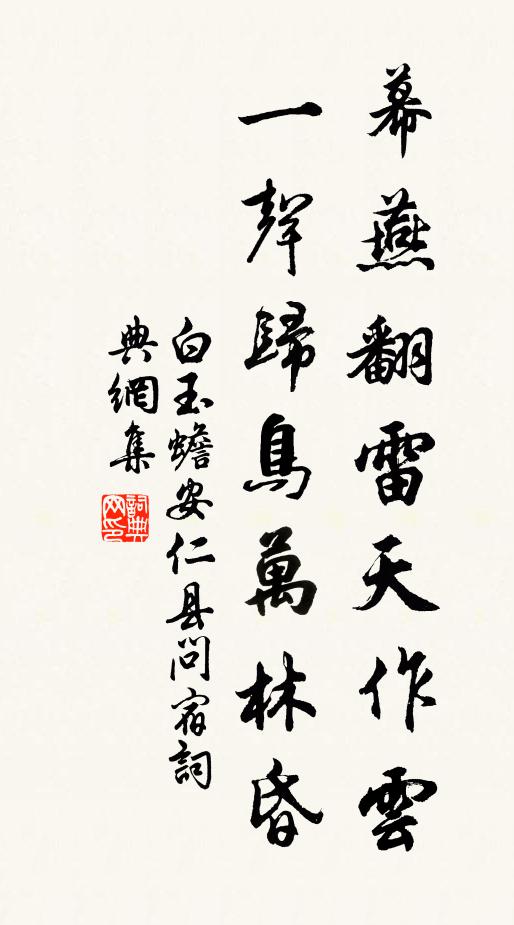 幕燕翻雷天作雲
一聲歸鳥萬林昏
白玉蟾安仁县問宿詞
典網集
詞典
网印